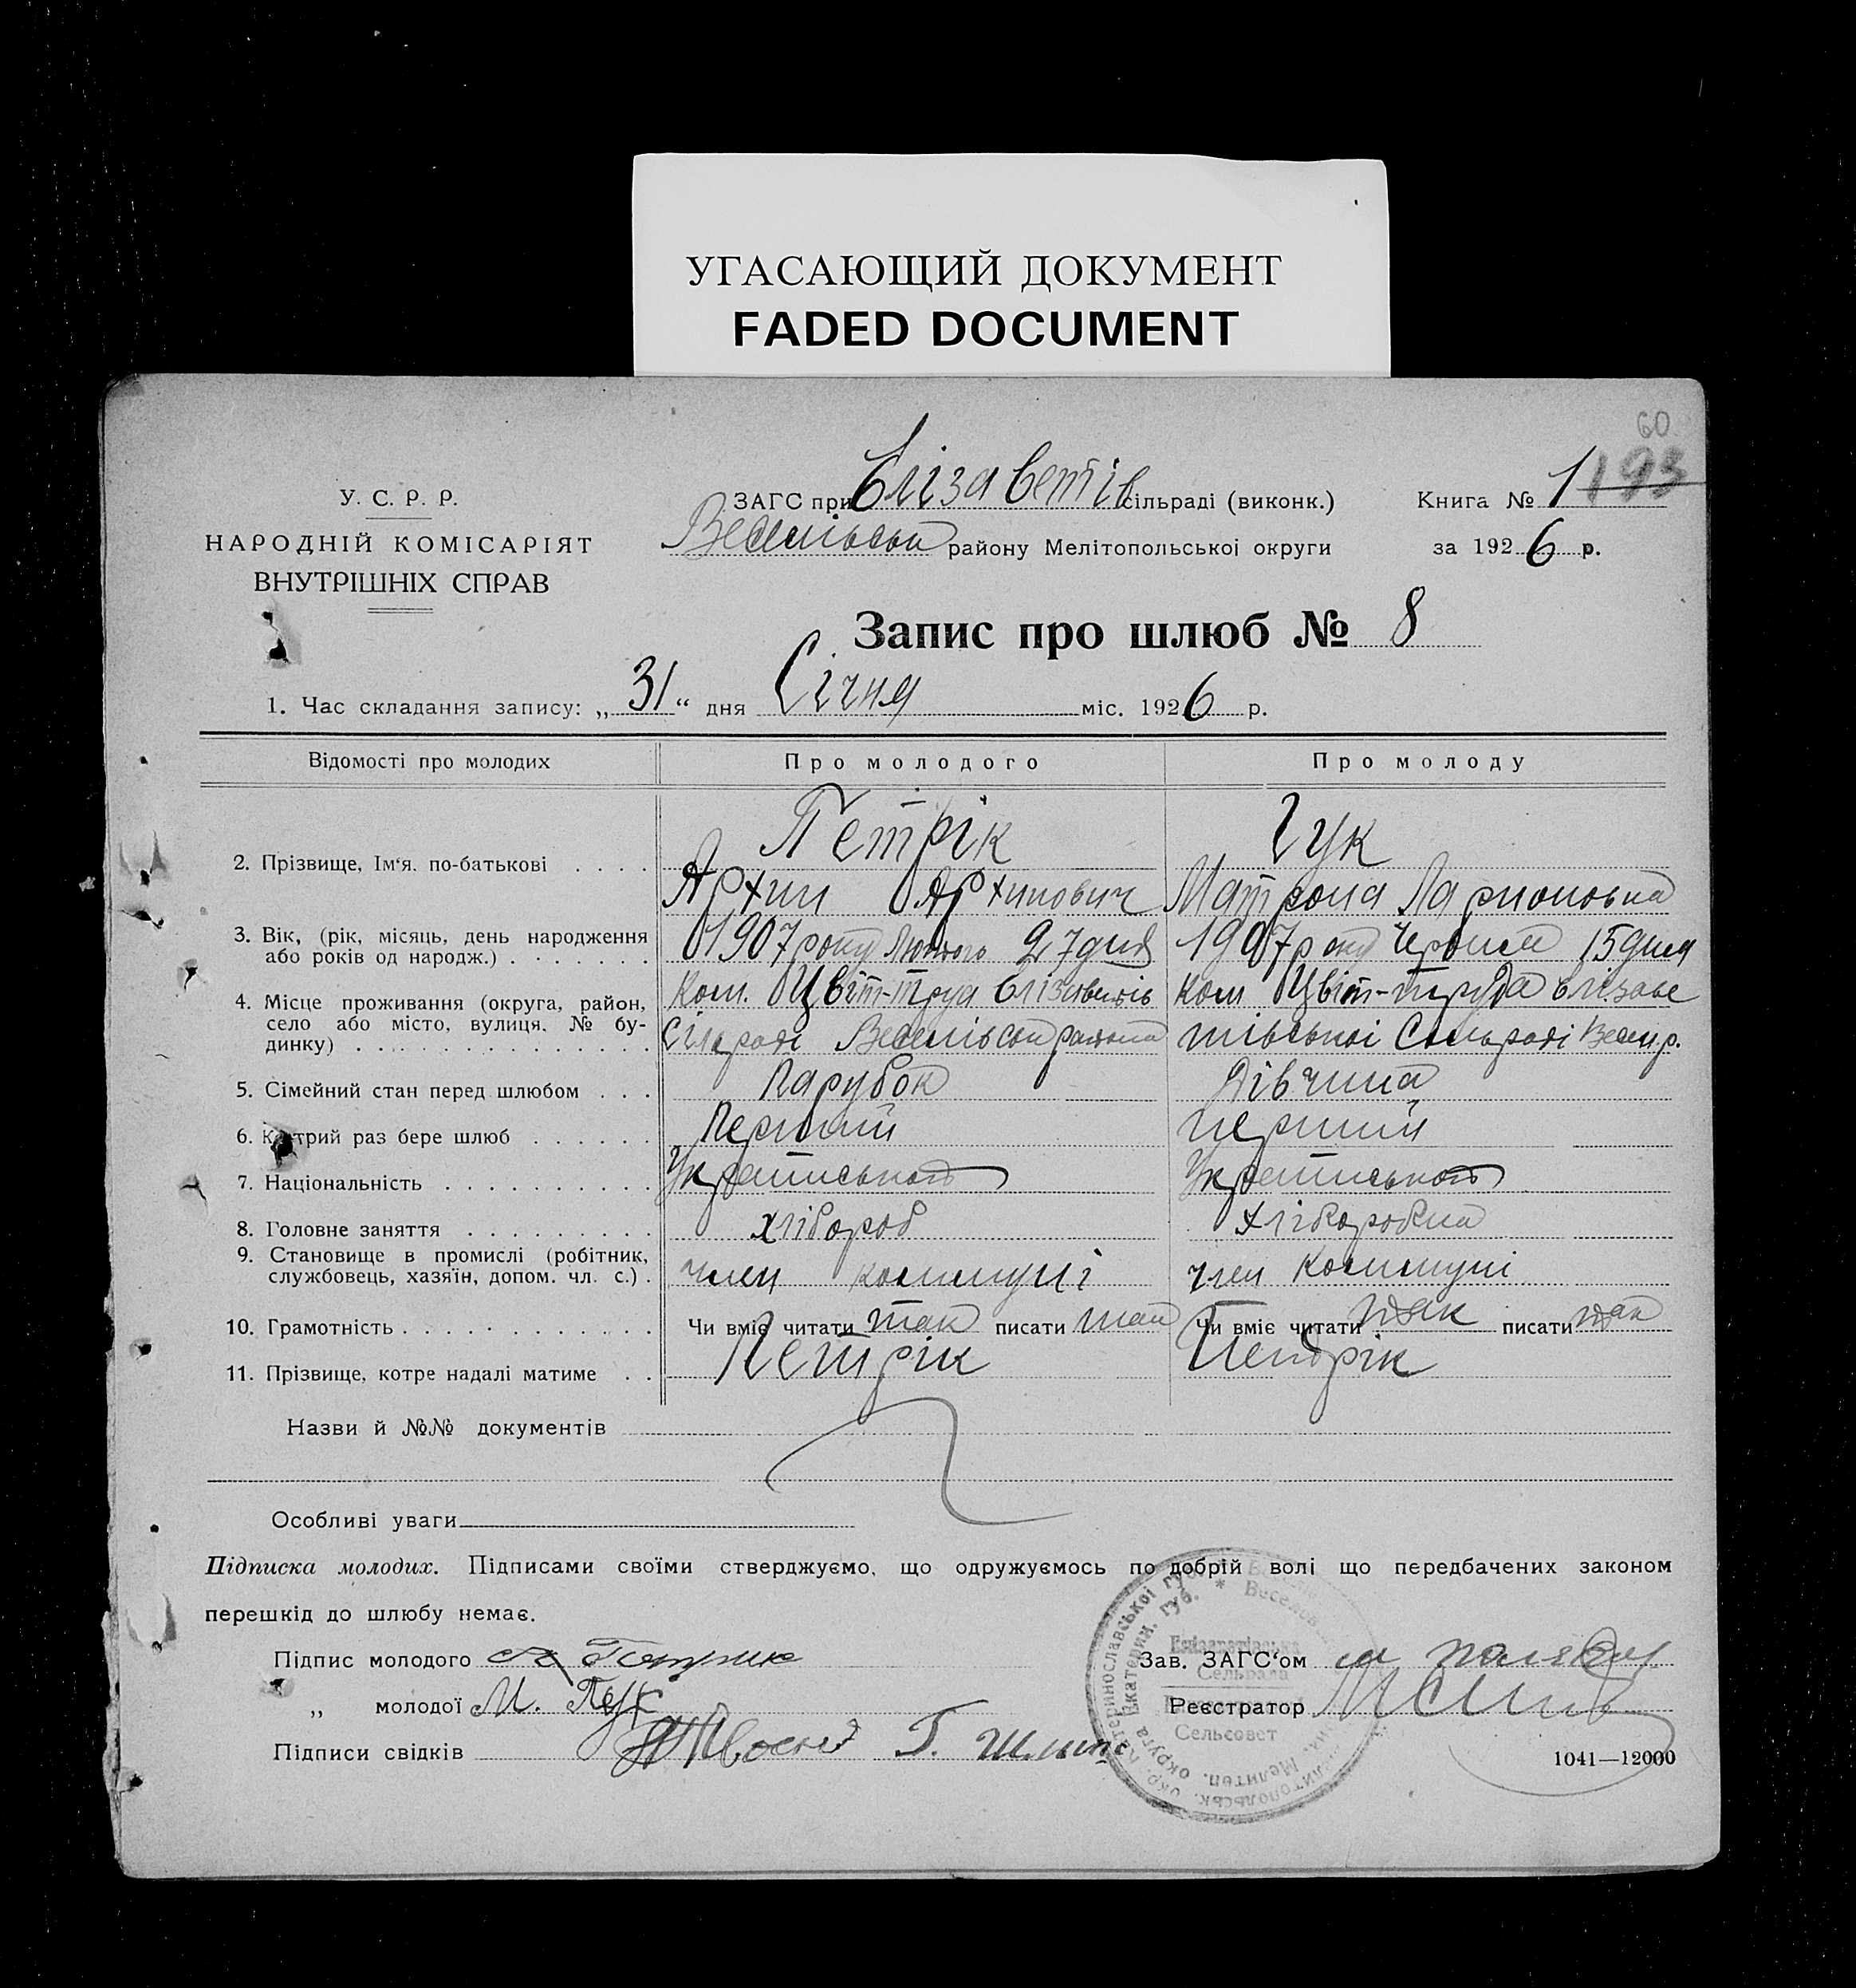 УГАСАЮЩИЙ ДОКУМЕНТ
FADED DOCUMENT
60
У. С. Р. Р.
НАРОДНІЙ КОМІСАРІЯТ
ВНУТРІШНІХ СПРАВ
ЗАГС при Єлізаветів сільраді (виконк.)
Книга № 1 193
Весельськ району Мелітопольської округи
за 1926 р.
Запис про шлюб № 8
1. Час складання запису: „31“ дня Січня міс. 1926 р.
Відомості про молодих Про молодого Про молоду
Петрік Гук
2. Прізвище, Ім‘я. по-батькові
Архип Архипович Матрона Ларионовна
3. Вік, (рік, місяць, день народження
або років од народж.)
1907 року Лютого 27 дня 1907 року Червня 15 дня
4. Місце проживання (округа, район,
село або місто, вулиця. № бу-
динку)
Ком. Цвіт-труда Єлізаветів Ком Цвіт-труда Єлізаве
Сілради Весельськ району тівської Сільраді Весел.р.
5. Сімейний стан перед шлюбом Парубок Дівчина
6. Котрий раз бере шлюб Перший перший
7. Національність
8. Головне заняття хлібороб хліборобка
9. Становище в промислі (робітник,
службовець, хазяїн, допом. чл. с.)
член коммуні член Коммуні
10. Грамотність Чи вміє читати так писати так Чи вміє читати так писати так
11. Прізвище, котре надалі матиме Петрік Петрік
Назви й №№ документів
Особливі уваги
Підписка молодих. Підписами своїми стверджуємо, що одружуємось по добрій волі що передбачених законом
перешкід до шлюбу немає.
Підпис молодого Петрик
Зав. ЗАГС‘ом
„ молодої М. Гук
Реєстратор
Підписи свідків
Сельрада
Сельсовет
1041—12000